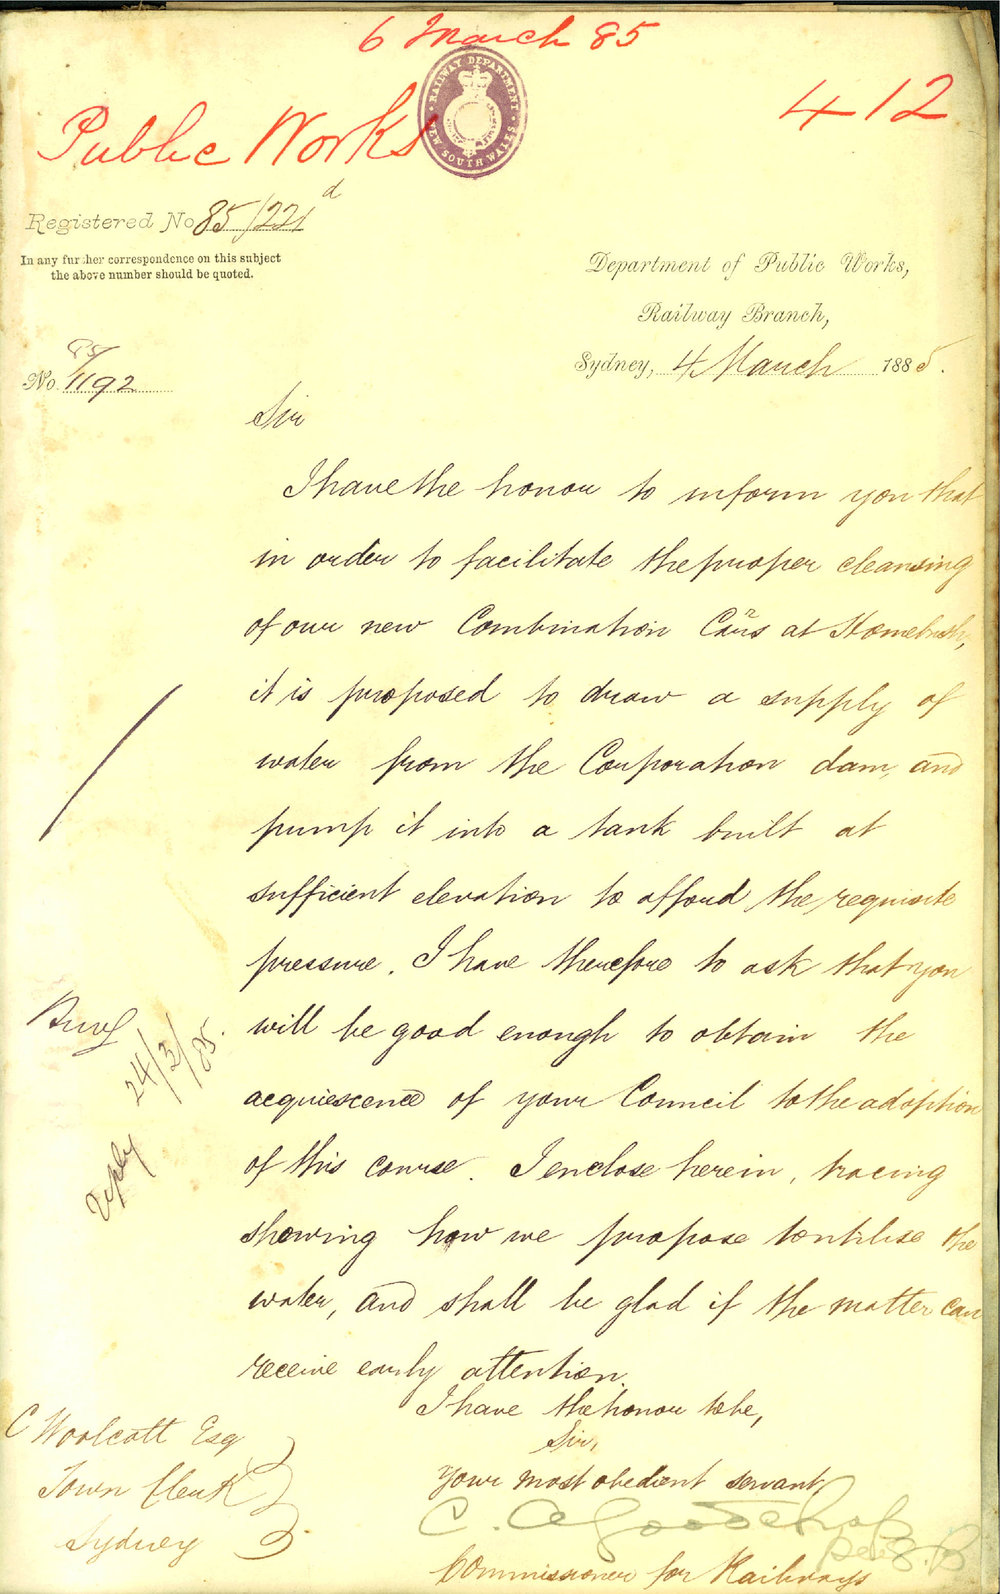 6 March 85
RAILWAY DEPARTMENT
NEW SOUTH WALES
412
Public Works
Registered No 85/221 d
In any further correspondence on this subject
the above number should be quoted.
Department of Public Works,
Railway Branch,
Sydney, 4 March 1885.
No. 85/1192
Sir
I have the honor to inform you that
in order to facilitate the proper cleansing
of our new Combination Cars at Homebush,
it is proposed to draw a supply of
water from the Corporation dam, and
pump it into a tank built at
sufficient elevation to afford the requisite
pressure. I have therefore to ask that you
will be good enough to obtain the
acquiescence of your Council to the adoption
of this course. I enclose herein, tracing
showing how we propose to utilise the
water, and shall be glad if the matter can
receive early attention.
I have the honor to be,
Sir,
Your most obedient servant
C. A. Goodchap
Commissioner for Railways
C Woolcott Esq
Town Clerk
Sydney
Reply 24/3/85.